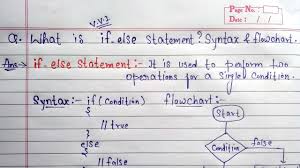 Page No.:
Date: / /
V.V.I
Q. What is if-else Statement? Syntax & flowchart.
Ans→ if-else Statement:- It is used to perform two
operations for a Single Condition.
Syntax:- if (Condition) flowchart:-
{ Start
// true
}
else
{ Condition false
// false